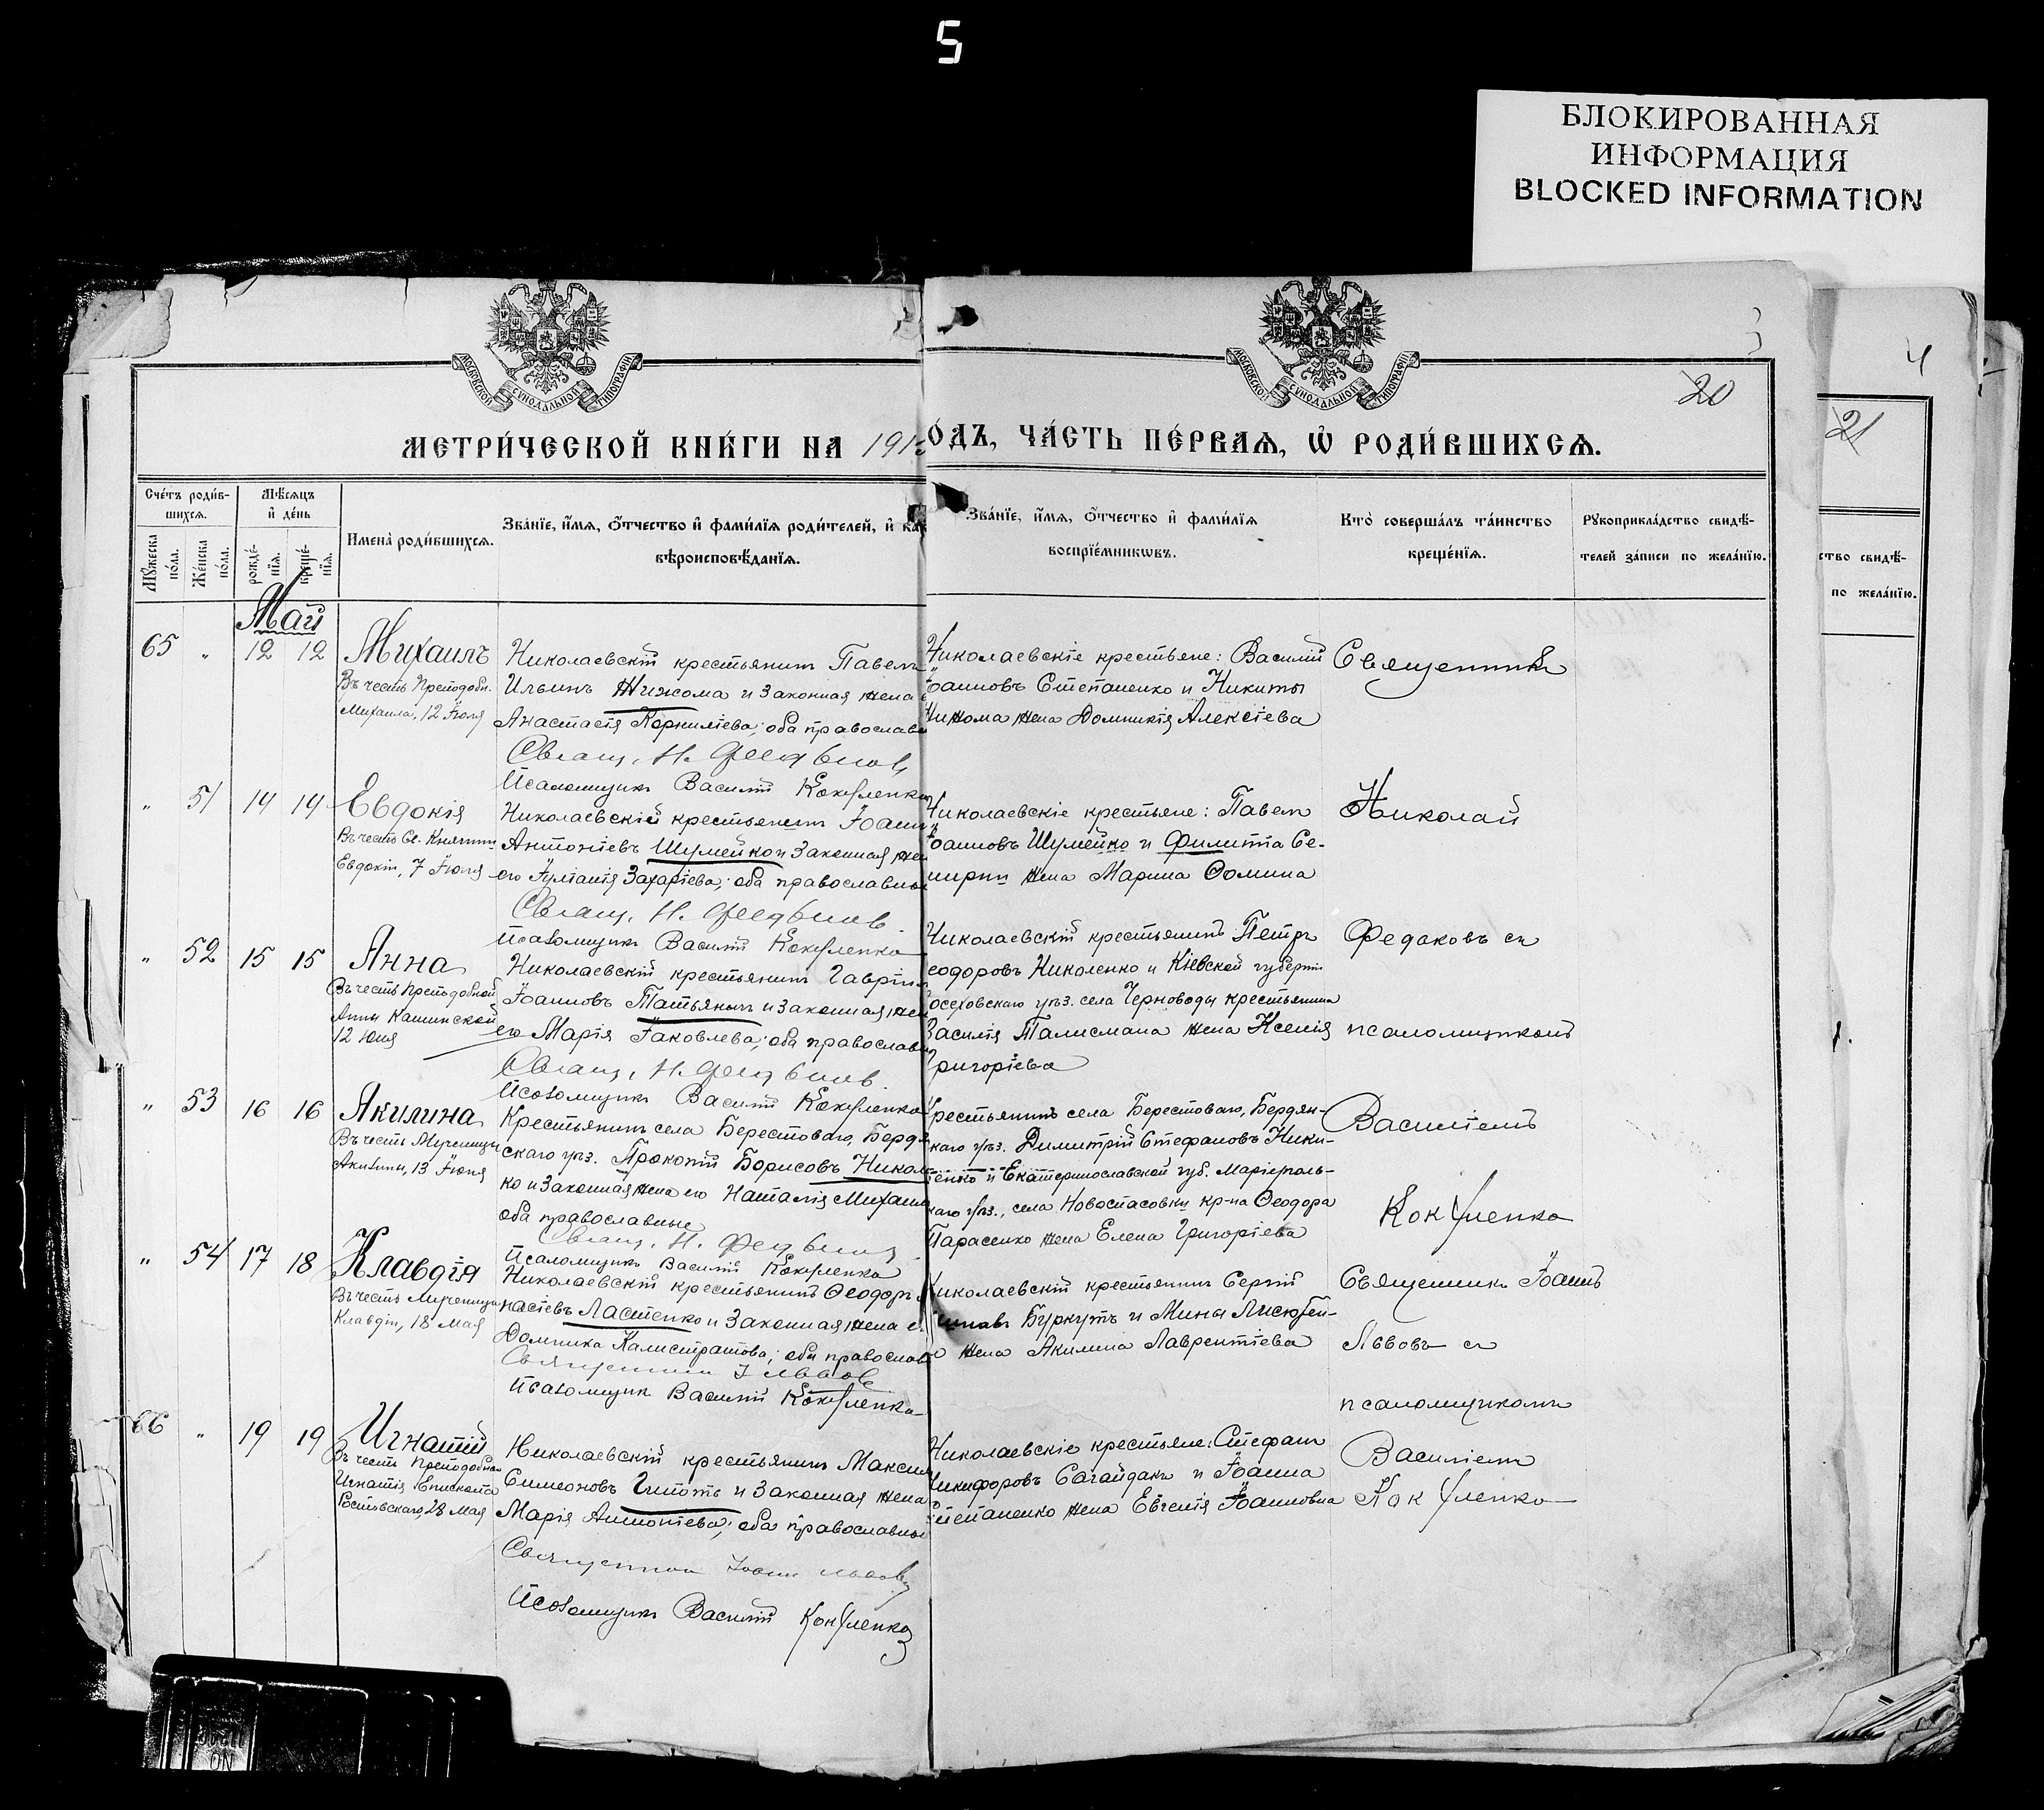 5
БЛОКИРОВАННАЯ
ИНФОРМАЦИЯ
BLOCKED INFORMATION
МОСКОВСКОЙ СѴНОДАЛЬНОЙ ТИПОГРАФІИ
МОСКОВСКОЙ СѴНОДАЛЬНОЙ ТИПОГРАФІИ
4
20
21
МЕТРИ́ЧЕСКОЙ КНИ́ГИ НА 191
ОДЪ, ЧА́СТЬ ПЕ́РВАѦ, Ѡ҆ РОДИ́ВШИХСѦ.
Сче́тъ роди́в-
шихсѧ.
Мꙋ́жеска по́ла.
Же́нска по́ла.
Мѣ́сѧцъ
и҆ де́нь
рожде́-
нїѧ.
креще́-
нїѧ.
Имена̀ роди́вшихсѧ.
Зва́нїе, и҆́мѧ, ѻ҆́тчество и҆ фами́лїѧ роди́телей, и҆ ка
вѣроисповѣ́данїѧ.
Зва́нїе, и҆́мѧ, ѻ҆́тчество и҆ фами́лїѧ
воспрїе́мникѡвъ.
Кто̀ соверша́лъ та́инство
креще́нїѧ.
Рꙋкоприкла́дство свидѣ́-
телей за́писи по жела́нїю.
ство свидѣ́-
по жела́нїю.
Май
65 " 12 12 Михаилъ
Въ честь Преподобн.
Михаила, 12 Іюля
Николаевскій крестьянинъ Павелъ
Ильинъ Жижома и законная жена
Анастасія Корнилiева; оба православн
Свящ. Н. Федьков
Псаломщикъ Василій Кокуленко
Николаевскіе крестьяне: Василій
Іоанновъ Степаненко и Никиты
Жижома жена Домникія Алексіева
Священникъ
" 51 14 14 Евдокія
Въ честь Св. Княгини
Евдокіи, 7 Іюля
Николаевскій крестьянинъ Іоанн
Антоніевъ Шумейко и законная жен
его Іуліанія Захаріева; оба православные
Свящ. Н. Федьков
Псаломщикъ Василій Кокуленко
Николаевскіе крестьяне: Павелъ
Іоанновъ Шумейко и Филиппа Се-
жена Марина Ѳомина
Николай
" 52 15 15 Анна
Въ честь Преподобной
Анны Кашинской
12 Юня
Николаевскій крестьянинъ Гавріил
Іоанновъ Татьянычъ и законная жен
его Марія Іаковлева; оба православн
Свящ. Н. Федьков
Псаломщикъ Василій Кокуленко
Николаевскій крестьянинъ Петръ
еодоровъ Николенко и Кіевской губерніи
уѣз. села Черноводы крестьянина
Василія Талисмана жена Ксенія
Григоріева
Федаковъ съ
псаломщикомъ
" 53 16 16 Акилина
Въ честь Мученицы
Акилины, 13 Іюня
Крестьянинъ села Берестоваго, Бердян
скаго уѣз. Прокопій Борисовъ Никол
ко и законная жена его Наталія Михаил
оба православные
Свящ. Н. Федьков
Псаломщикъ Василій Кокуленко
Крестьянинъ села Берестоваго, Бердян-
скаго уѣз. Димитрій Стефановъ Нико-
ленко и Екатеринославской губ. Маріуполь-
скаго уѣз., села Новоспасовки кр-на Ѳеодора
Тарасенко жена Елена Григоріева
Василіемъ
Кокуленко
" 54 17 18 Клавдія
Въ честь Мученицы
Клавдіи, 18 Мая
Николаевскій крестьянинъ Ѳеодоръ
насіевъ Ластенко и законная жена е
Домника Калистратова; оба православн
Священникъ І Львовъ
Псаломщикъ Василій Кокуленко
Николаевскій крестьянинъ Сергій
Буркутъ и Мины
жена Акилина Лаврентіева
Священникъ Іоаннъ
Львовъ съ
псаломщикомъ
66 " 19 19 Игнатій
Въ честь Преподобнаго
Игнатія Епископа
Ростовскаго, 28 Мая
Николаевскій крестьянинъ Максим
Симеоновъ и законная жена
Марія Антоніева; оба православные
Священникъ Іоаннъ Львовъ
Псаломщикъ Василій Кокуленко
Николаевскіе крестьяне: Стефанъ
Никифоровъ Сагайдакъ и Іоанна
Степаненко жена Евгенія Іоанновна
Василіемъ
Кокуленко